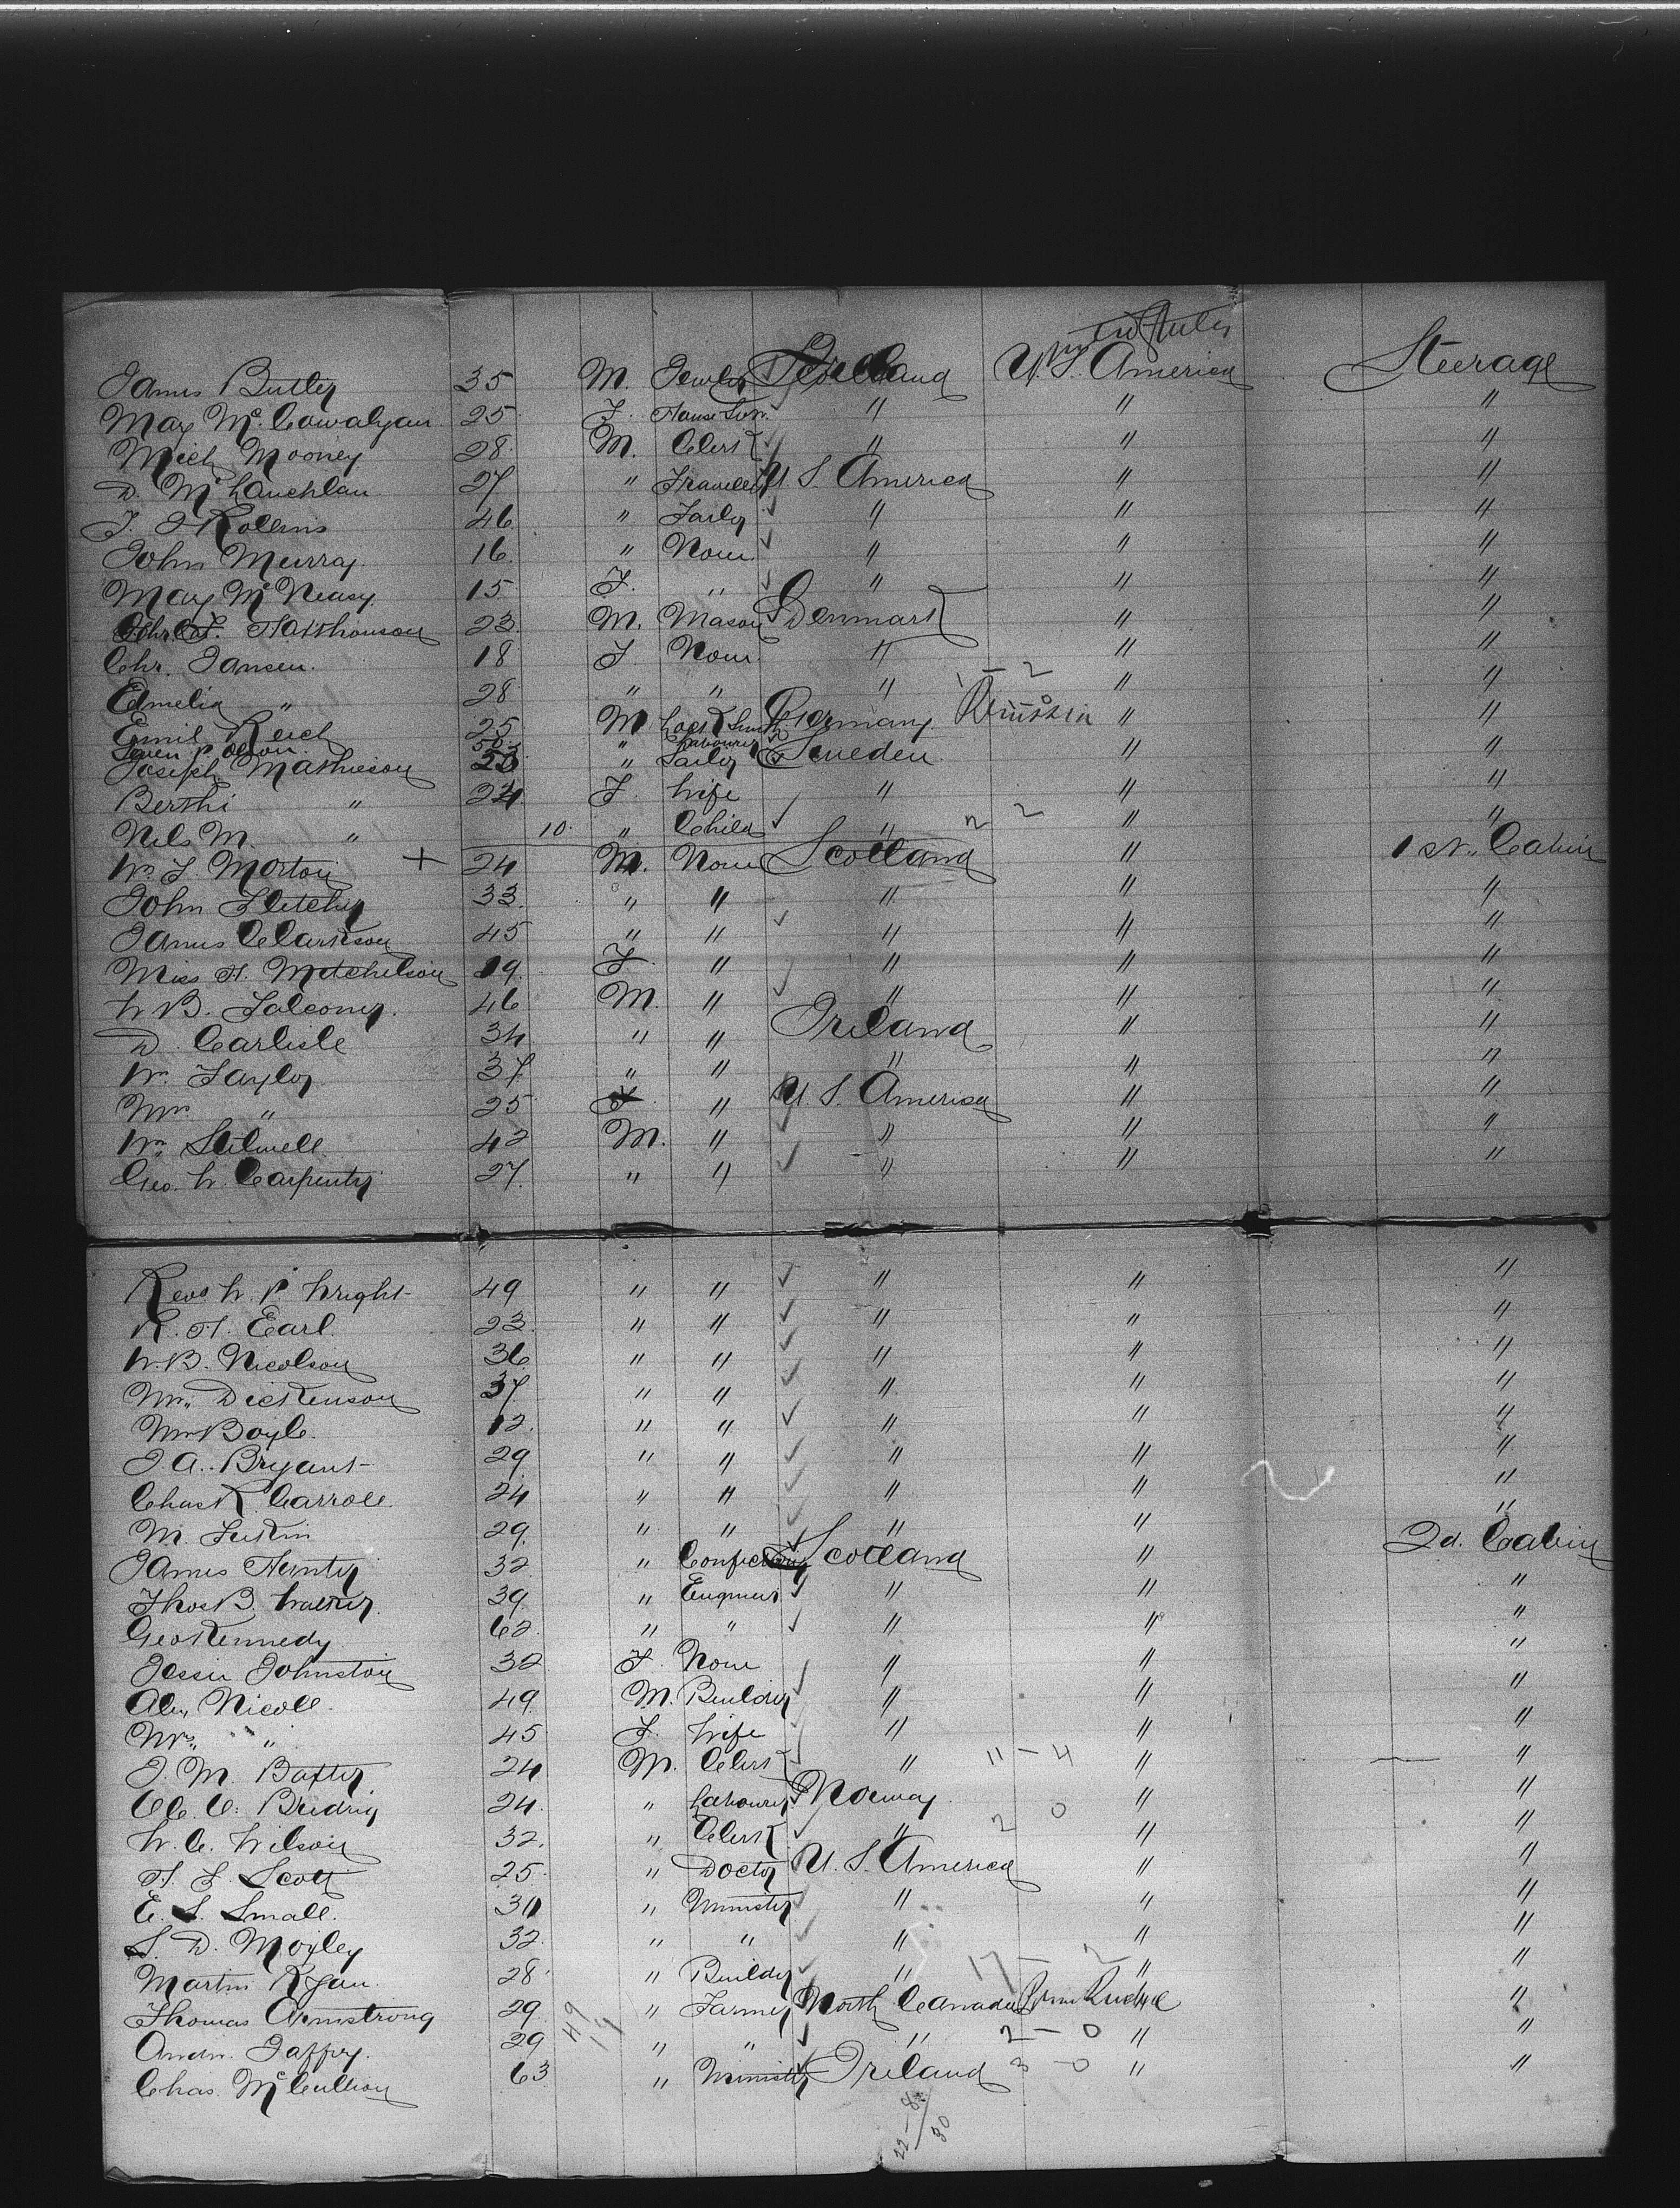 United States
James Butler 35 M. Jeweler Ireland U. S. America Steerage
May Mc. Cowalyan 25 F. House Serv. " " "
Mich Mooney 28 M. Clerk " " "
D. McLauchlan 27 " Traveller U. S. America " "
J. J. Rollins 46 " Tailor " " "
John Murray 16 " None " " "
May McNeasy 15 F. " " " "
Matthouson 23 M. Mason Denmark " "
Chr. Jansen 18 F None " " "
Emelia " 28 " " " 1 - 2 " "
Emil Reich 25 M Lock Smith Germany Prussia " "
Soren P. Olson 50 " Labourer
Joseph Mathieson 23 " Sailor Sweden " "
Berthi " 24 F. Wife " " "
Nils M. " 10. " Child " 2 2 " "
Wm. J. Morton + 24 M. None Scotland " 1st. Cabin
John Fletcher 33. " " " " "
James Clarkson 45 " " " " "
Miss H. Mitchelson 19. F. " " " "
W B. Falconer. 46 M. " " " "
D. Carlisle 34 " " Ireland " "
Wm. Taylor 37 " " " " "
Mrs. " 25 F " U. S. America " "
Wm. Stilwell. 42 M. " " " "
Geo. W. Carpenter 27. " " " " "
Revd W. P. Wright 49 " " " " "
R. H. Earl. 23. " " " " "
W. B. Nicolson 36 " " " " "
Mr. Dickenson 37. " " " " "
Mr Boyle. 12. " " " " "
J. A. Bryant 29 " " " " "
Chas R. Carroll. 24 " " " " "
M. 29. " " " " "
James Hunter 32 " Confectioner Scotland " 2d. Cabin
Thos B. Walker. 39 " Engineer " " "
Geo Kennedy 62 " " " " "
Jessie Johnston 32 F. None " " "
Alex Nicoll. 49 M. Builder " " "
Mrs. " 45 F. Wife " " "
J. M. Baxter 24 M. Clerk " 11 - 4 " "
Ole C. 24. " Labourer Norway " "
W. C. Wilson 32. " Clerk " 2 0 " "
H. F. Scott 25. " Doctor U. S. America " "
E. S. Small. 30 " Minister " " "
S. D. Moxley 32. " " " " "
Martin Ryan 28. " Builder " 17 - 2 " "
Thomas Armstrong 29. " Farmer North Canada "
Andw. Jaffry. 29 " " " 2 - 0 " "
Chas. McCullion 63 " Minister Ireland 3 - 0 " "
49